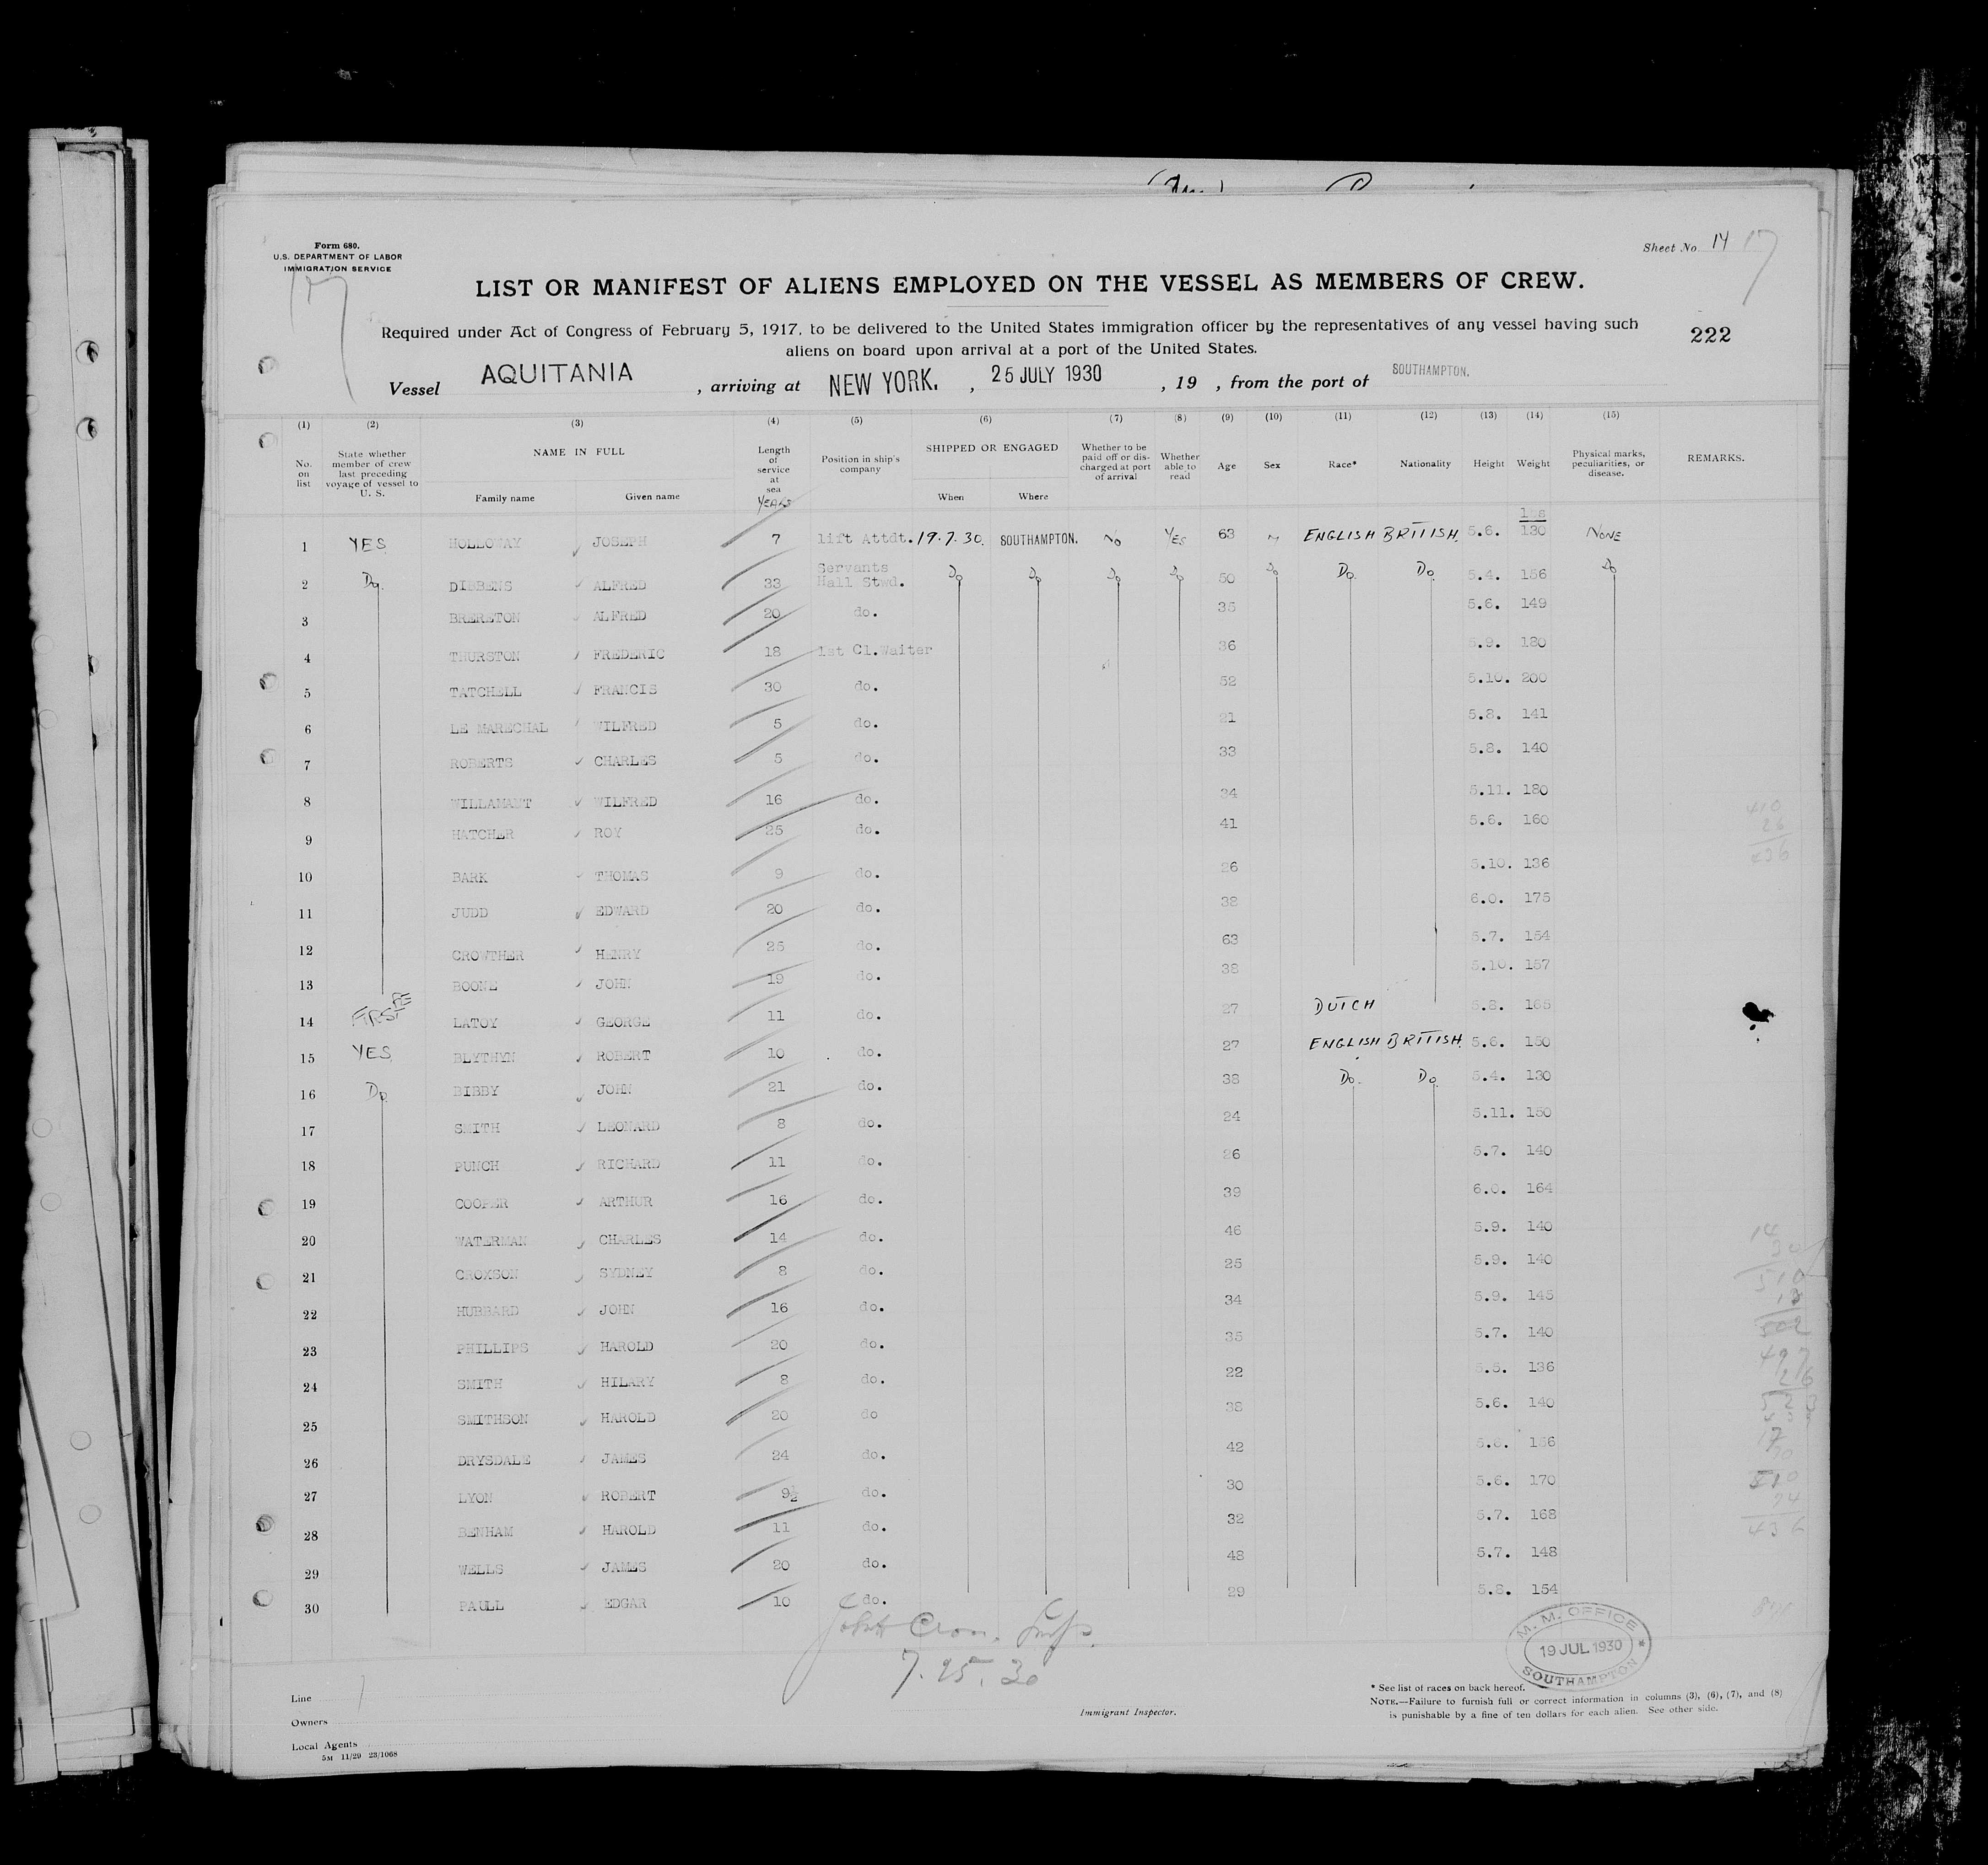 Form 680.
U.S. DEPARTMENT OF LABOR
IMMIGRATION SERVICE
Sheet No. 14 17
17
LIST OR MANIFEST OF ALIENS EMPLOYED ON THE VESSEL AS MEMBERS OF CREW.
Required under Act of Congress of February 5, 1917, to be delivered to the United States immigration officer by the representatives of any vessel having such
aliens on board upon arrival at a port of the United States.
222
Vessel AQUITANIA , arriving at NEW YORK. , 25 JULY 1930 , 19 , from the port of SOUTHAMPTON.
(1) (2) (3) (4) (5) (6) (7) (8) (9) (10) (11) (12) (13) (14) (15)
No. on list State whether member of crew last preceding voyage of vessel to U. S. NAME IN FULL Family name Given name Length of service at sea YEARS Position in ship's company SHIPPED OR ENGAGED When Where Whether to be paid off or discharged at port of arrival Whether able to read Age Sex Race* Nationality Height Weight Physical marks, peculiarities, or disease. REMARKS.
lbs
1 YES HOLLOWAY JOSEPH 7 lift Attdt. 19.7.30. SOUTHAMPTON. No YES 63 M ENGLISH BRITISH. 5.6. 130 NONE
2 Do DIBBENS ALFRED 33 Servants Hall Stwd. Do Do Do Do 50 Do Do. Do. 5.4. 156 Do
3 BRERETON ALFRED 20 do. 35 5.6. 149
4 THURSTON FREDERIC 18 1st Cl.Waiter 36 5.9. 180
5 TATCHELL FRANCIS 30 do. 52 5.10. 200
6 LE MARECHAL WILFRED 5 do. 21 5.8. 141
7 ROBERTS CHARLES 5 do. 33 5.8. 140
8 WILLAMANT WILFRED 16 do. 34 5.11. 180
9 HATCHER ROY 25 do. 41 5.6. 160
10 BARK THOMAS 9 do. 26 5.10. 136
11 JUDD EDWARD 20 do. 38 6.0. 175
12 CROWTHER HENRY 25 do. 63 5.7. 154
13 BOONE JOHN 19 do. 38 5.10. 157
14 LATOY GEORGE 11 do. 27 DUTCH 5.8. 165
15 YES BLYTHYN ROBERT 10 do. 27 ENGLISH BRITISH. 5.6. 150
16 Do BIBBY JOHN 21 do. 38 Do. Do 5.4. 130
17 SMITH LEONARD 8 do. 24 5.11. 150
18 PUNCH RICHARD 11 do. 26 5.7. 140
19 COOPER ARTHUR 16 do. 39 6.0. 164
20 WATERMAN CHARLES 14 do. 46 5.9. 140
21 CROXSON SYDNEY 8 do. 25 5.9. 140
22 HUBBARD JOHN 16 do. 34 5.9. 145
23 PHILLIPS HAROLD 20 do. 35 5.7. 140
24 SMITH HILARY 8 do. 22 5.5. 136
25 SMITHSON HAROLD 20 do 38 5.6. 140
26 DRYSDALE JAMES 24 do. 42
27 LYON ROBERT 9½ do. 30 5.6. 170
28 BENHAM HAROLD 11 do. 32 5.7. 168
29 WELLS JAMES 20 do. 48 5.7. 148
30 PAULL EDGAR 10 do. 29 5.8. 154
7.25.30
M. M. OFFICE
19 JUL 1930
SOUTHAMPTON
Line
Owners
Local Agents
5M 11/29 23/1068
Immigrant Inspector.
* See list of races on back hereof.
NOTE.—Failure to furnish full or correct information in columns (3), (6), (7), and (8)
is punishable by a fine of ten dollars for each alien. See other side.